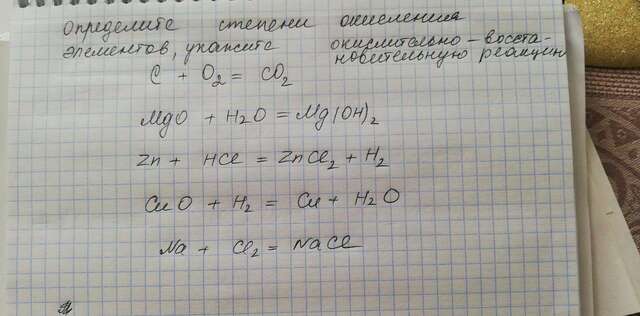 Определите степени окисления
элементов, укажите окислительно-восста-
новительную реакцию
C + O₂ = CO₂
MgO + H₂O = Mg(OH)₂
Zn + HCl = ZnCl₂ + H₂
CuO + H₂ = Cu + H₂O
Na + Cl₂ = NaCl